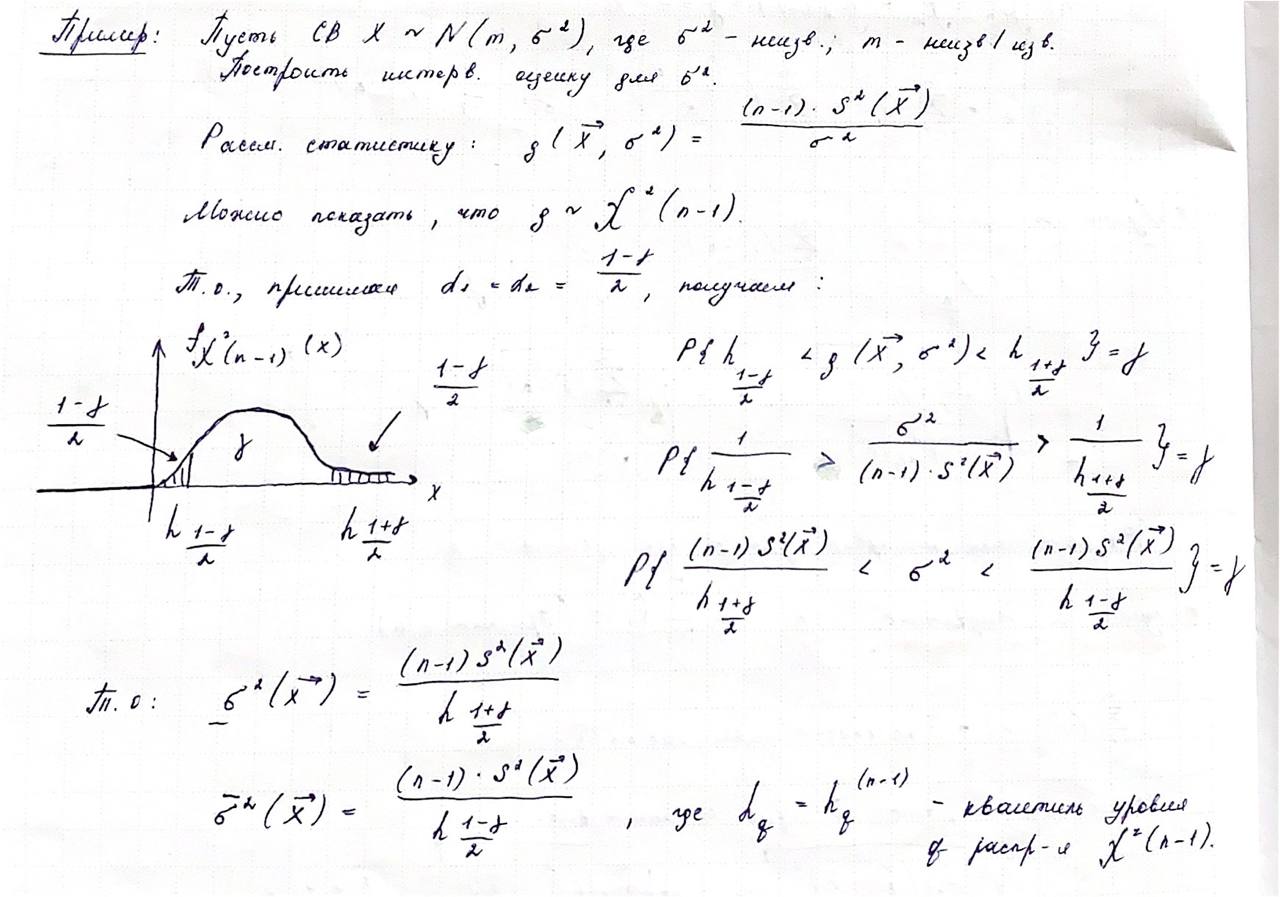 Пример: Пусть СВ X ~ N(m, σ²), где σ² - неизв.; m - неизв/изв.
Построить интерв. оценку для σ².
Рассм. статистику: g(X⃗, σ²) = (n-1)·S²(X⃗) / σ²
Можно показать, что g ~ χ²(n-1).
Т.о., принимая α₁ = α₂ = (1-γ)/2, получаем:
f_χ²(n-1) (x)
(1-γ)/2
(1-γ)/2
γ
x
h_(1-γ)/2
h_(1+γ)/2
P{ h_(1-γ)/2 < g(X⃗, σ²) < h_(1+γ)/2 } = γ
P{ 1 / h_(1-γ)/2 > σ² / ((n-1)·S²(X⃗)) > 1 / h_(1+γ)/2 } = γ
P{ (n-1)S²(X⃗) / h_(1+γ)/2 < σ² < (n-1)S²(X⃗) / h_(1-γ)/2 } = γ
Т.о: σ̲²(X⃗) = (n-1)S²(X⃗) / h_(1+γ)/2
σ̄²(X⃗) = (n-1)·S²(X⃗) / h_(1-γ)/2 , где h_q = h_q^(n-1) - квантиль уровня
q распр-я χ²(n-1).